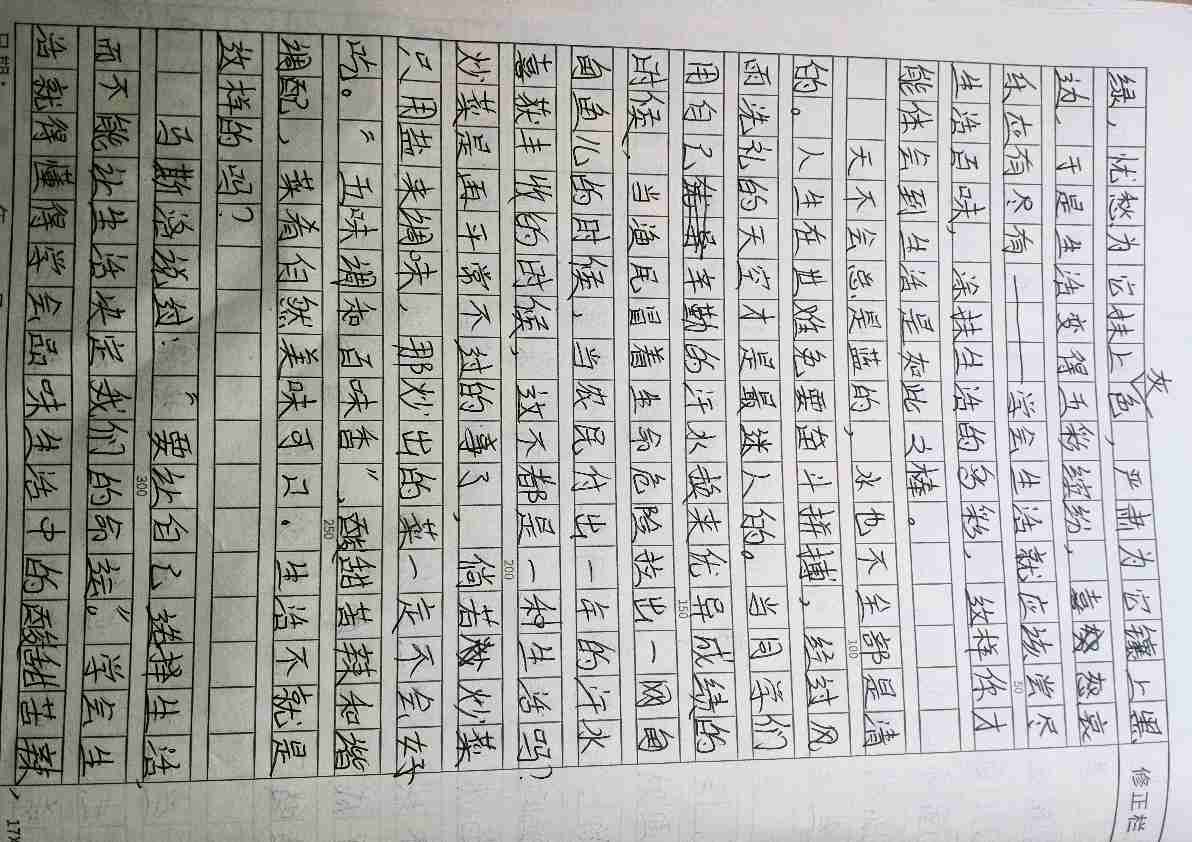 绿，忧愁为它抹上灰色，严肃为它镶上黑
边，于是生活变得五彩缤纷，喜怒哀
乐应有尽有——学会生活就应该尝尽
50
生活百味，深扶生活的多彩，这样你才
能体会到生活是如此之棒。
天不会总是蓝的，水也不全部是清
100
的。人生在世难免要奋斗拼搏，经过风
雨洗礼的天空才是最迷人的。当同学们
用自己辛勤的汗水换来优异成绩的
150
时候，当渔民冒着生命危险拉出一网甸
甸鱼儿的时候，当农民付出一年的汗水
喜获丰收的时候，这不都是一种生活吗？
200
炒菜是再平常不过的事了，倘若炒菜
只用盐来调味，那炒出的菜一定不会好
吃。“五味调和百味香”，酸甜苦辣和谐
250
调配，菜肴自然美味可口。生活不就是
这样的吗？
马斯洛说过：“要让自己选择生活，
300
而不能让生活决定我们的命运。”学会生
活就得懂得学会品味生活中的酸甜苦辣，
修正栏